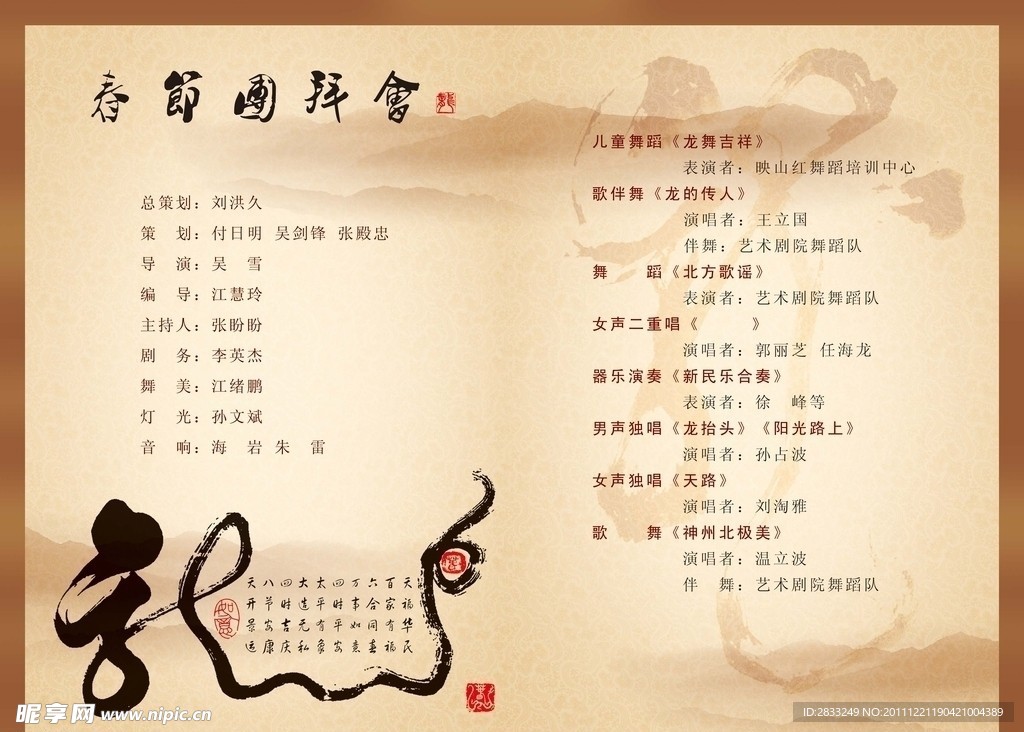 春節團拜會
总策划：刘洪久
策　划：付日明 吴剑锋 张殿忠
导　演：吴　雪
编　导：江慧玲
主持人：张盼盼
剧　务：李英杰
舞　美：江绪鹏
灯　光：孙文斌
音　响：海　岩 朱　雷
儿童舞蹈《龙舞吉祥》
表演者：映山红舞蹈培训中心
歌伴舞《龙的传人》
演唱者：王立国
伴舞：艺术剧院舞蹈队
舞　　蹈《北方歌谣》
表演者：艺术剧院舞蹈队
女声二重唱《　　　》
演唱者：郭丽芝 任海龙
器乐演奏《新民乐合奏》
表演者：徐　峰等
男声独唱《龙抬头》《阳光路上》
演唱者：孙占波
女声独唱《天路》
演唱者：刘淘雅
歌　　舞《神州北极美》
演唱者：温立波
伴　舞：艺术剧院舞蹈队
天福华民
百家有福
六合同春
万事如意
四时平安
太平有象
大造元私
四时吉庆
八节安康
天开景运
如意
昵享网 www.nipic.cn
ID:2833249 NO:20111221190421004389